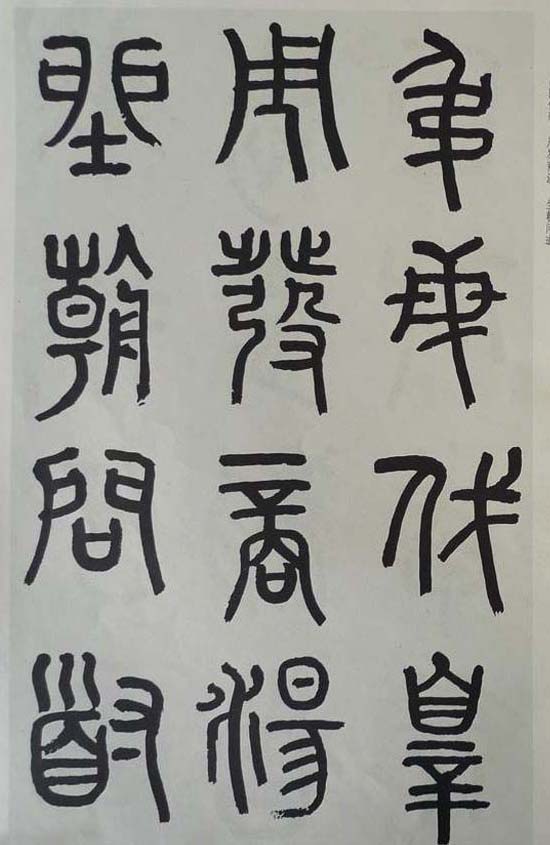 弔民伐辠
周發商湯
坐朝問道